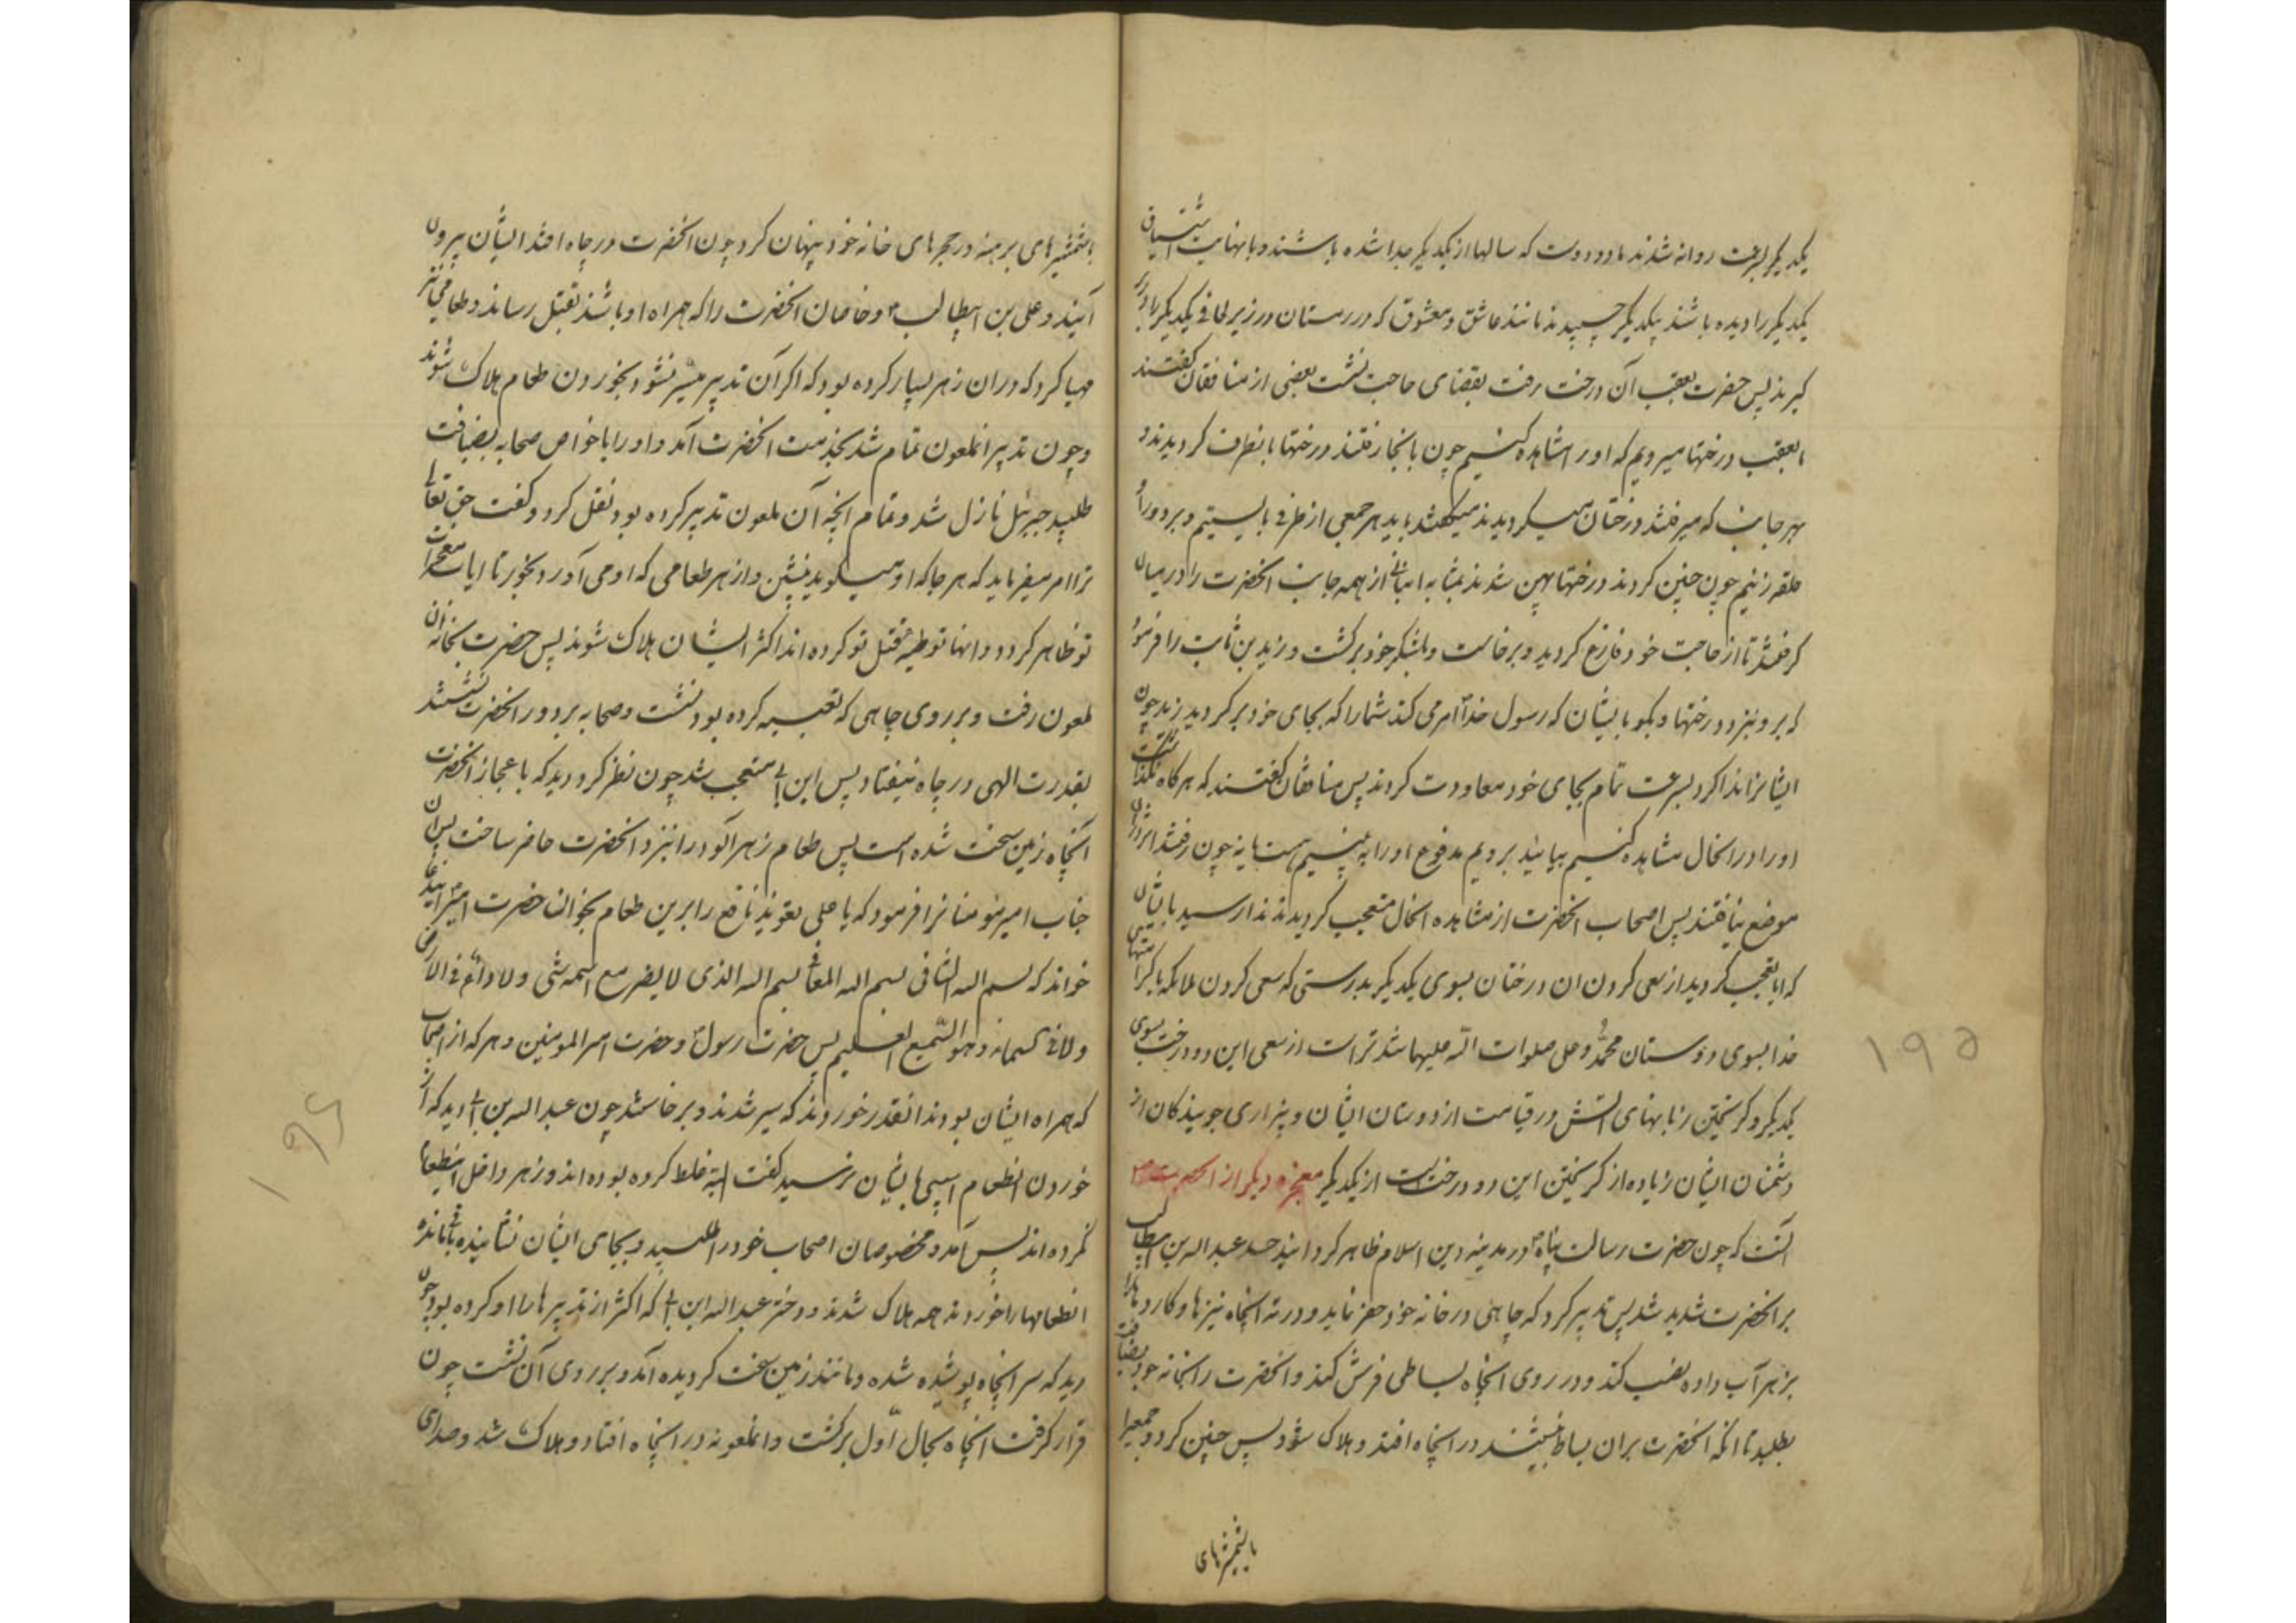 یکدیگر بسرعت روانه شدند مانند دو دوست که سالها از یکدیگر جدا شده باشند و با نهایت اشتیاق
یکدیگر را دیده باشند پیکدیگر چسپیدند مانند عاشق و معشوق که در زمستان در زیر لحافی یکدیگر را در بر
گیرند پس حضرت بعقب آن درخت رفت بقضای حاجت نشست بعضی از منافقان گفتند
بعقب درختها میرویم که او را مشاهده کنیم چون بانجا رفتند درختها بانطرف کردیدند و
بهر جانب که میرفتند درختان میکردیدند میگفتند باید هر جمعی از طرفی بایستیم و بر دور او
حلقه زنیم چون چنین کردند درختها پهن شدند بمثابه انبانی از همه جانب انحضرت را در میان
کرفتند تا از حاجت خود فارغ کردید و برخاست و بلشکر خود برکشت و زید بن ثابت را فرمود
که برو بنزد درختها و بگو بایشان که رسول خدا امر می کند شما را که بجای خود بر کردید زید چون
ایشانرا ندا کرد بسرعت تمام بجای خود معاودت کردند پس منافقان گفتند که هرگاه نگذاشت
او را در انحال مشاهده کنیم بیائید برویم مدفوع او را به بینیم هست یا نه چون رفتند اثر در آن
موضع نیافتند پس اصحاب انحضرت از مشاهده انحال متعجب کردیدند ندا رسید بایشان
که ایا تعجب کردید از سعی کردن ان درختان بسوی یکدیگر بدرستی که سعی کردن ملائکه با کرامتهای
خدا بسوی دوستان محمد و علی صلوات الله علیهما شدیدتر است از سعی این دو درخت بسوی
یکدیگر و کریختن زبانهای اتش در قیامت از دوستان ایشان و بیزاری جویندکان از
دشمنان ایشان زیاده از کریختن این دو درخت است از یکدیگر معجزه دیگر از انحضرت ص
انست که چون حضرت رسالت پناه در مدینه دین اسلام ظاهر کردانید حسد عبدالله بن ابی
بر انحضرت شدید شد پس تدبیر کرد که چاهی در خانه خود حفر نماید و در ته انچاه نیزها و کاردها را
بزهر آب داده نصب کند و در روی انچاه بساطی فرش کند و انحضرت را بخانه خود بضیافت
بطلبد تا انکه انحضرت بران بساط نشیند در انچاه افتد و هلاک شود پس چنین کرد و جمعیرا
با شمشیرهای
با شمشیرهای برهنه در حجرهای خانه خود پنهان کرد چون انحضرت در چاه افتد ایشان بیرون
آیند و علی بن ابیطالب و خاصان انحضرت را که همراه او باشند بقتل رسانند و طعامی نیز
مهیا کرد که در ان زهر بسیار کرده بود که اگر آن تدبیر میسر نشود بخوردن طعام هلاک شوند
و چون تدبیر انملعون تمام شد بخدمت انحضرت آمد و او را با خواص صحابه بضیافت
طلبید جبرئیل نازل شد و تمام انچه آن ملعون تدبیر کرده بود نقل کرد و گفت حق تعالی
ترا امر میفرماید که هر جا که او میگوید بنشین و از هر طعامی که او می آورد بخور تا ایات معجزات
تو ظاهر کردد و انها که توطیه قتل تو کرده اند اکثر ایشان هلاک شوند پس حضرت بخانه ان
ملعون رفت و بر روی چاهی که تعبیه کرده بود نشست و صحابه بر دور انحضرت نشستند
بقدرت الهی در چاه نیفتاد پس ابن ابی متعجب شد چون نظر کرد دید که باعجاز انحضرت
انچاه زمین سخت شده است پس طعام زهر آلود را بنزد انحضرت حاضر ساخت پس ان
جناب امیر مومنانرا فرمود که یا علی تعویذ نافع را برین طعام بخوان حضرت امیر این دعا
خواند که بسم الله الشافی بسم الله المعافی بسم الله الذی لا یضر مع اسمه شی و لا داء فی الارض
و لا فی السماء و هو السمیع العلیم پس حضرت رسول و حضرت امیر المومنین و هر که از اصحاب
که همراه ایشان بودند انقدر خوردند که سیر شدند و برخاستند چون عبدالله بن ابی دید که از
خوردن انطعام اسیبی بایشان نرسید گفت البته غلط کرده بوده اند و زهر داخل این طعام
نکرده اند پس آمد و مخصوصان اصحاب خود را طلبید و بجای ایشان نشانید باقی مانده
انطعامها را خوردند همه هلاک شدند و دختر عبدالله ابن ابی که اکثر از تدبیرها را او کرده بود چون
دید که سر انچاه پوشیده شده و مانند زمین سخت کردیده آمد و بر روی آن نشست چون
قرار گرفت انچاه بحال اول برکشت و انملعونه در انچاه افتاد و هلاک شد و صدای